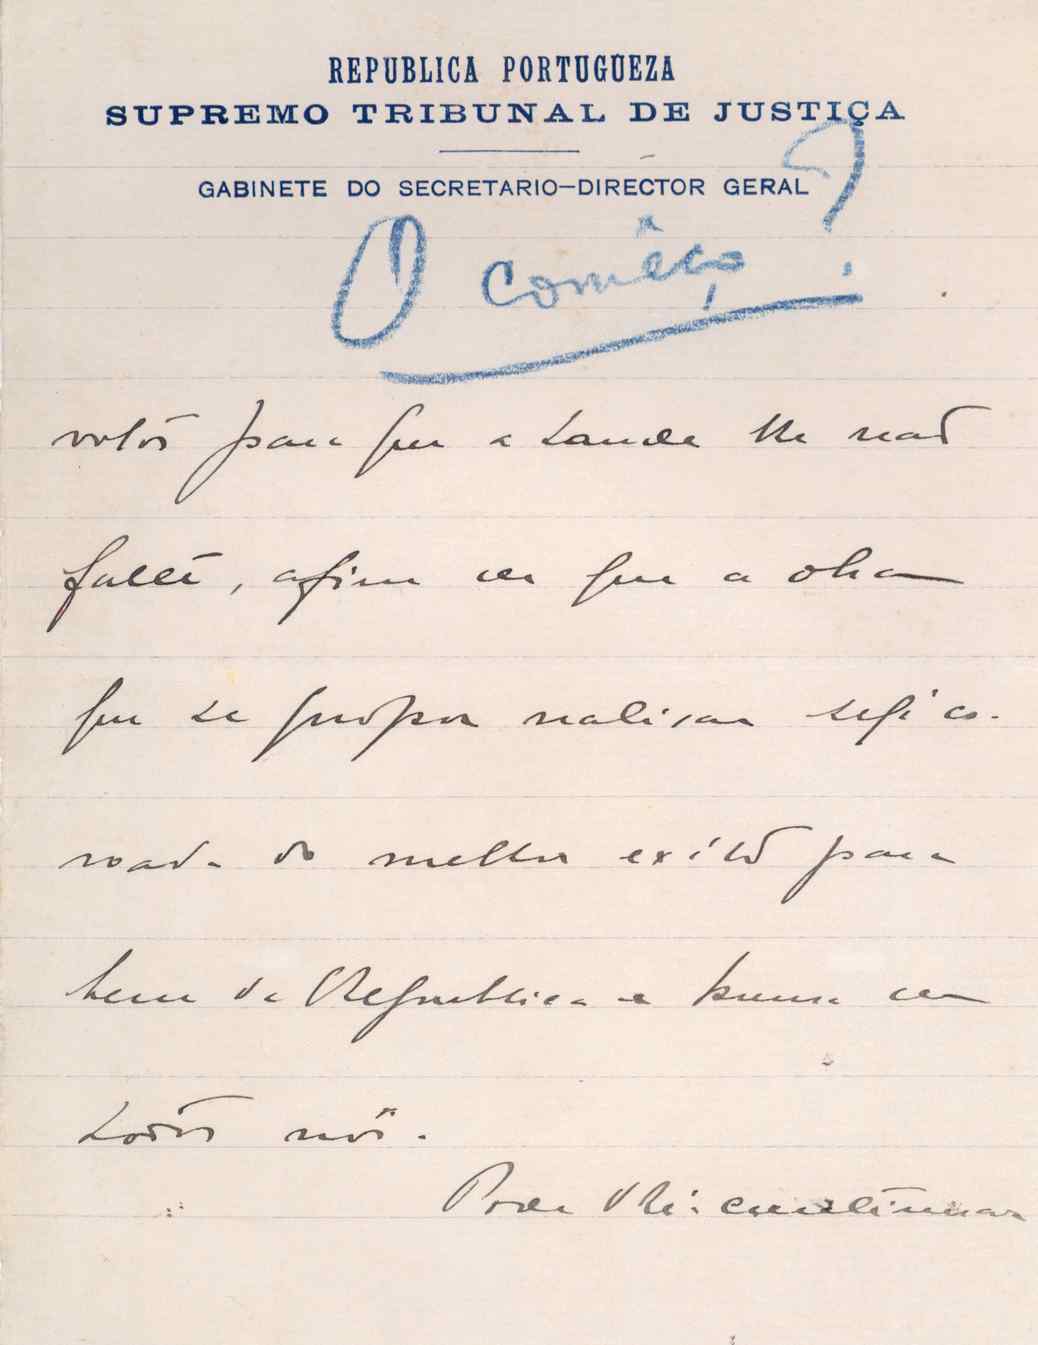 REPUBLICA PORTUGUEZA
SUPREMO TRIBUNAL DE JUSTIÇA
GABINETE DO SECRETARIO-DIRECTOR GERAL
O comêço?
votos para que a saude lhe não
falte, afim de que a obra
que se propoz realisar seja co-
roada do melhor exito para
bem da Republica e honra de
todos nós.
Pode V. Ex.ª continuar